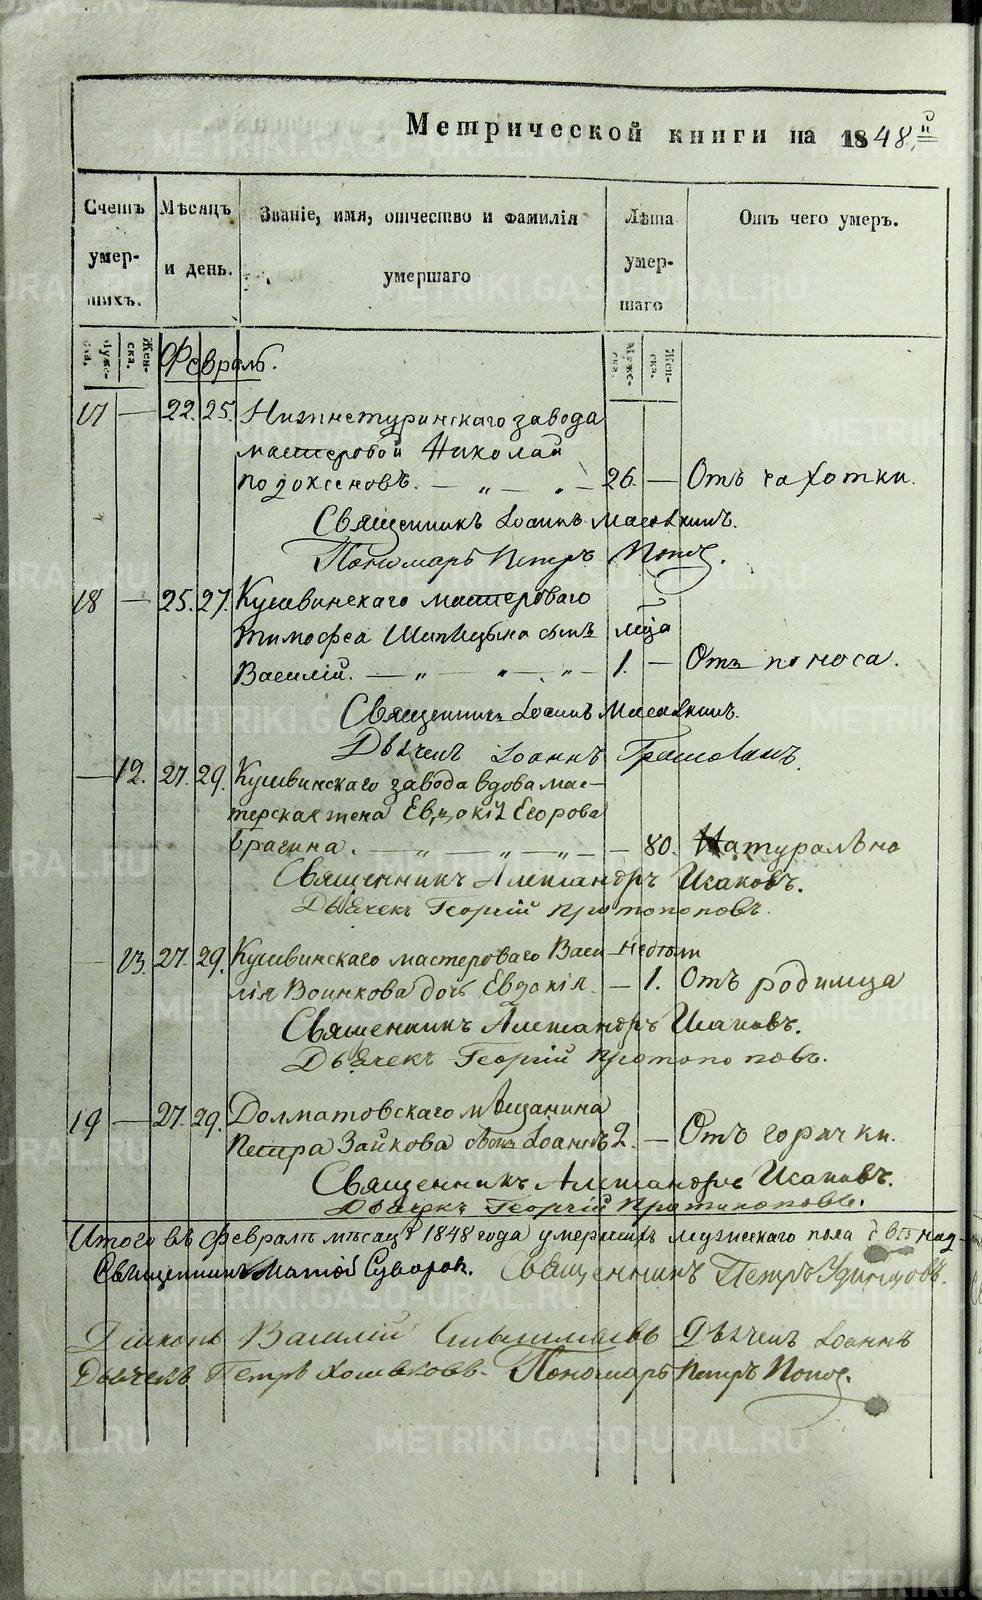 Метрической книги на 1848 й
Счетъ умер-шихъ.
Мѣсяцъ и день.
Званіе, имя, отчество и фамилія умершаго
Лѣта умер-шаго
Отъ чего умеръ.
Муже-ска. Жен-ска.
Муже-ска. Жен-ска.
Февраль.
17 — 22. 25. Нижнетуринскаго завода
мастеровой Николай
26. — Отъ чахотки.
Священникъ Іоаннъ
Пономарь Петръ Попов.
18 — 25. 27. Кушвинскаго мастероваго
Тимофея Шипицына сынъ мца
Василій. — „ — „ — „ — 1. — Отъ поноса.
Священникъ Іоаннъ
Дьячекъ Іоаннъ
— 12. 27. 29. Кушвинскаго завода вдова мас-
терская жена Евдокія Егорова
Брагина. — „ — „ — „ — — 80. Натурально
Священникъ Александръ Исаковъ.
Дьячекъ Георгій Протопоповъ.
— 13. 27. 29. Кушвинскаго мастероваго Васи- недѣли
лія Воинкова дочь Евдокія. — 1. Отъ родимца
Священникъ Александръ Исаковъ.
Дьячекъ Георгій Протопоповъ.
19 — 27. 29. Долматовскаго мѣщанина
Петра Зайкова сынъ Іоаннъ 2. — Отъ горячки.
Священникъ Александръ Исаковъ.
Дьячекъ Георгій Протопоповъ.
Итого въ Февралѣ мѣсяцѣ 1848 года умершихъ мужескаго пола девятнад-
Священникъ Матѳій Суворов. Священникъ Петръ Удинцовъ.
Діаконъ Василій Дьячекъ Іоаннъ
Дьячекъ Петръ Хомяковъ. Пономарь Петръ Попов.
METRIKI.GASO-URAL.RU